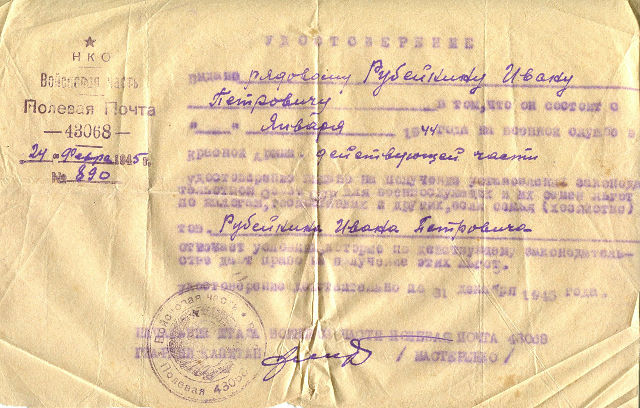 УДОСТОВЕРЕНИЕ
НКО
Войсковая часть
Полевая Почта
— 43068 —
24 " Февра 1945 г.
№ 890
Выдано рядовому Рубейкину Ивану
Петровичу в том, что он состоит с
" " Января 1944 года на военной службе в
красной армии действующей части
удостоверение выдано на получение установленных законода
тельством для военнослужащих и их семей льгот
по налогам, и других, если семья (хозяйство)
тов. Рубейкина Ивана Петровича
отвечает условиям, которые по действующему законодатель-
стве дают право на получение этих льгот.
удостоверение действительно до 31 декабря 1945 года.
НАЧАЛЬНИК ШТАБА ВОЙСК ЧАСТИ ПОЛЕВАЯ ПОЧТА 43068
ГВАРДИИ КАПИТАН / МАСТЕРЕНКО /
Войсковая часть
Полевая 43068